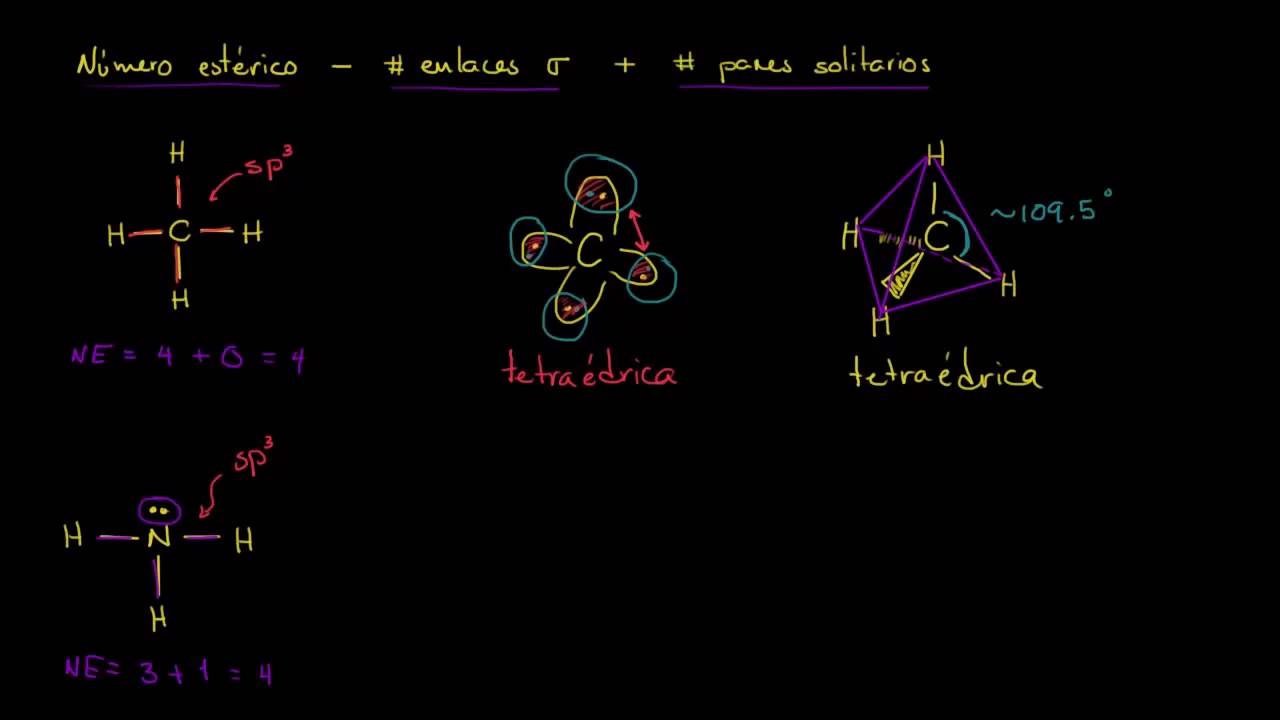 Número estérico - # enlaces σ + # pares solitarios
H
sp³
H C H
H
NE = 4 + 0 = 4
C
tetraédrica
H
H C ~109.5°
H
H
tetraédrica
sp³
H N H
H
NE = 3 + 1 = 4